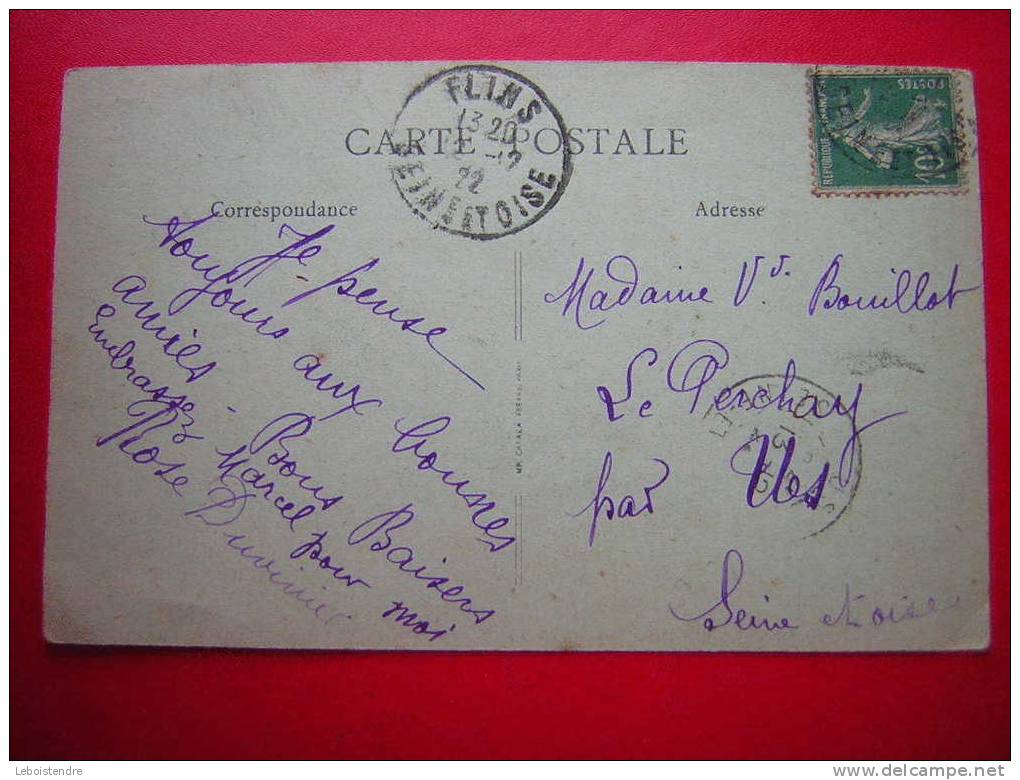 CARTE POSTALE
FLINS
13 20
22
SEINE ET OISE
POSTES
REPUBLIQUE FRANÇAISE
10c
Correspondance
Je pense
toujours aux bonnes
amies. Bons Baisers
Embrassez Marcel pour moi
Rose
Adresse
Madame Vve. Bouillot
Le Perchay
par Us
Seine et oise
Leboistendre
delcampe.net